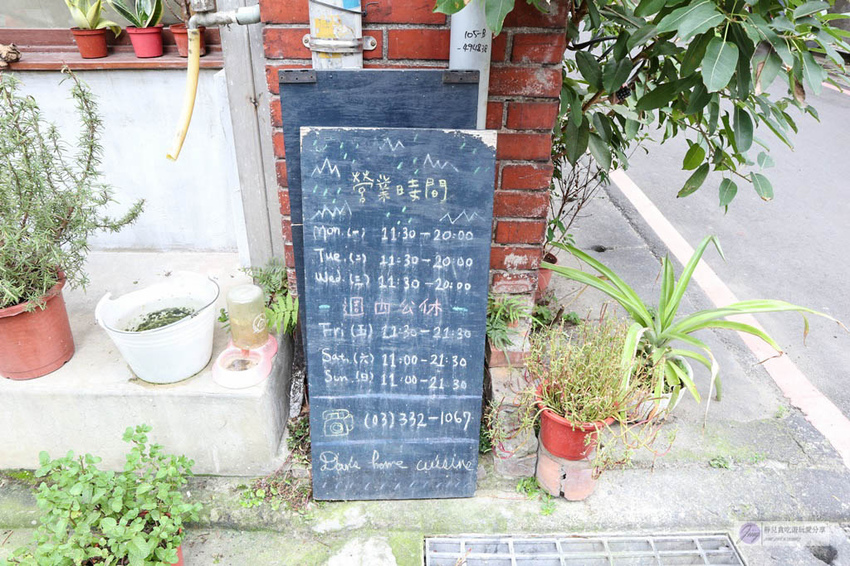 105-B
-49482
營業時間
Mon.(一) 11:30-20:00
Tue.(二) 11:30-20:00
Wed.(三) 11:30-20:00
週四公休
Fri.(五) 11:30-21:30
Sat.(六) 11:00-21:30
Sun.(日) 11:00-21:30
(03)332-1067
home cuisine